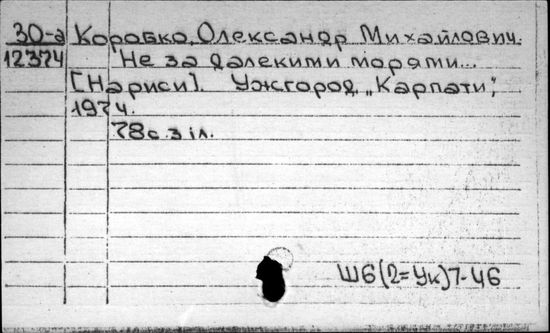 30-а Коробко, Олександр Михайлович.
12374 Не за далекими морями...
[Нариси]. Ужгород, „Карпати",
1974.
78с. з іл.
Ш6(2=Ук)7-46